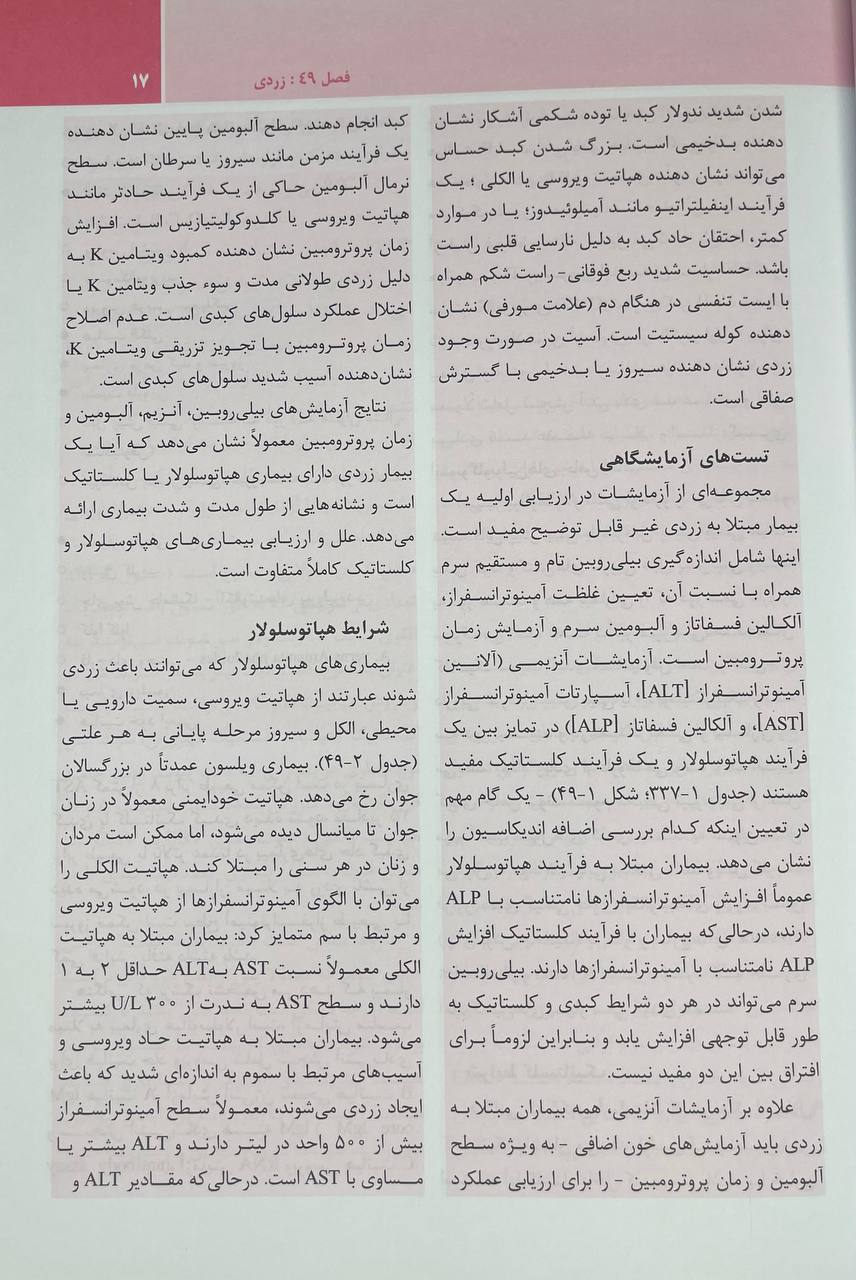 فصل ٤٩ : زردی
۱۷
شدن شدید ندولار کبد یا توده شکمی آشکار نشان
دهنده بدخیمی است. بزرگ شدن کبد حساس
می‌تواند نشان دهنده هپاتیت ویروسی یا الکلی ؛ یک
فرآیند اینفیلتراتیو مانند آمیلوئیدوز؛ یا در موارد
کمتر، احتقان حاد کبد به دلیل نارسایی قلبی راست
باشد. حساسیت شدید ربع فوقانی- راست شکم همراه
با ایست تنفسی در هنگام دم (علامت مورفی) نشان
دهنده کوله سیستیت است. آسیت در صورت وجود
زردی نشان دهنده سیروز یا بدخیمی با گسترش
صفاقی است.
تست‌های آزمایشگاهی
مجموعه‌ای از آزمایشات در ارزیابی اولیه یک
بیمار مبتلا به زردی غیر قابل توضیح مفید است.
اینها شامل اندازه‌گیری بیلی‌روبین تام و مستقیم سرم
همراه با نسبت آن، تعیین غلظت آمینوترانسفراز،
آلکالین فسفاتاز و آلبومین سرم و آزمایش زمان
پروترومبین است. آزمایشات آنزیمی (آلانین
آمینوترانسفراز [ALT]، آسپارتات آمینوترانسفراز
[AST]، و آلکالین فسفاتاز [ALP]) در تمایز بین یک
فرآیند هپاتوسلولار و یک فرآیند کلستاتیک مفید
هستند (جدول ۱-۳۳۷؛ شکل ۱-۴۹) - یک گام مهم
در تعیین اینکه کدام بررسی اضافه اندیکاسیون را
نشان می‌دهد. بیماران مبتلا به فرآیند هپاتوسلولار
عموماً افزایش آمینوترانسفرازها نامتناسب با ALP
دارند، درحالی‌که بیماران با فرآیند کلستاتیک افزایش
ALP نامتناسب با آمینوترانسفرازها دارند. بیلی‌روبین
سرم می‌تواند در هر دو شرایط کبدی و کلستاتیک به
طور قابل توجهی افزایش یابد و بنابراین لزوماً برای
افتراق بین این دو مفید نیست.
علاوه بر آزمایشات آنزیمی، همه بیماران مبتلا به
زردی باید آزمایش‌های خون اضافی - به ویژه سطح
آلبومین و زمان پروترومبین - را برای ارزیابی عملکرد
کبد انجام دهند. سطح آلبومین پایین نشان دهنده
یک فرآیند مزمن مانند سیروز یا سرطان است. سطح
نرمال آلبومین حاکی از یک فرآیند حادتر مانند
هپاتیت ویروسی یا کلدوکولیتیازیس است. افزایش
زمان پروترومبین نشان دهنده کمبود ویتامین K به
دلیل زردی طولانی مدت و سوء جذب ویتامین K یا
اختلال عملکرد سلول‌های کبدی است. عدم اصلاح
زمان پروترومبین با تجویز تزریقی ویتامین K،
نشان‌دهنده آسیب شدید سلول‌های کبدی است.
نتایج آزمایش‌های بیلی‌روبین، آنزیم، آلبومین و
زمان پروترومبین معمولاً نشان می‌دهد که آیا یک
بیمار زردی دارای بیماری هپاتوسلولار یا کلستاتیک
است و نشانه‌هایی از طول مدت و شدت بیماری ارائه
می‌دهد. علل و ارزیابی بیماری‌های هپاتوسلولار و
کلستاتیک کاملاً متفاوت است.
شرایط هپاتوسلولار
بیماری‌های هپاتوسلولار که می‌توانند باعث زردی
شوند عبارتند از هپاتیت ویروسی، سمیت دارویی یا
محیطی، الکل و سیروز مرحله پایانی به هر علتی
(جدول ۲-۴۹). بیماری ویلسون عمدتاً در بزرگسالان
جوان رخ می‌دهد. هپاتیت خودایمنی معمولاً در زنان
جوان تا میانسال دیده می‌شود، اما ممکن است مردان
و زنان در هر سنی را مبتلا کند. هپاتیت الکلی را
می‌توان با الگوی آمینوترانسفرازها از هپاتیت ویروسی
و مرتبط با سم متمایز کرد: بیماران مبتلا به هپاتیت
الکلی معمولاً نسبت AST به‌ALT حداقل ۲ به ۱
دارند و سطح AST به ندرت از ۳۰۰ U/L بیشتر
می‌شود. بیماران مبتلا به هپاتیت حاد ویروسی و
آسیب‌های مرتبط با سموم به اندازه‌ای شدید که باعث
ایجاد زردی می‌شوند، معمولاً سطح آمینوترانسفراز
بیش از ۵۰۰ واحد در لیتر دارند و ALT بیشتر یا
مساوی با AST است. درحالی‌که مقادیر ALT و